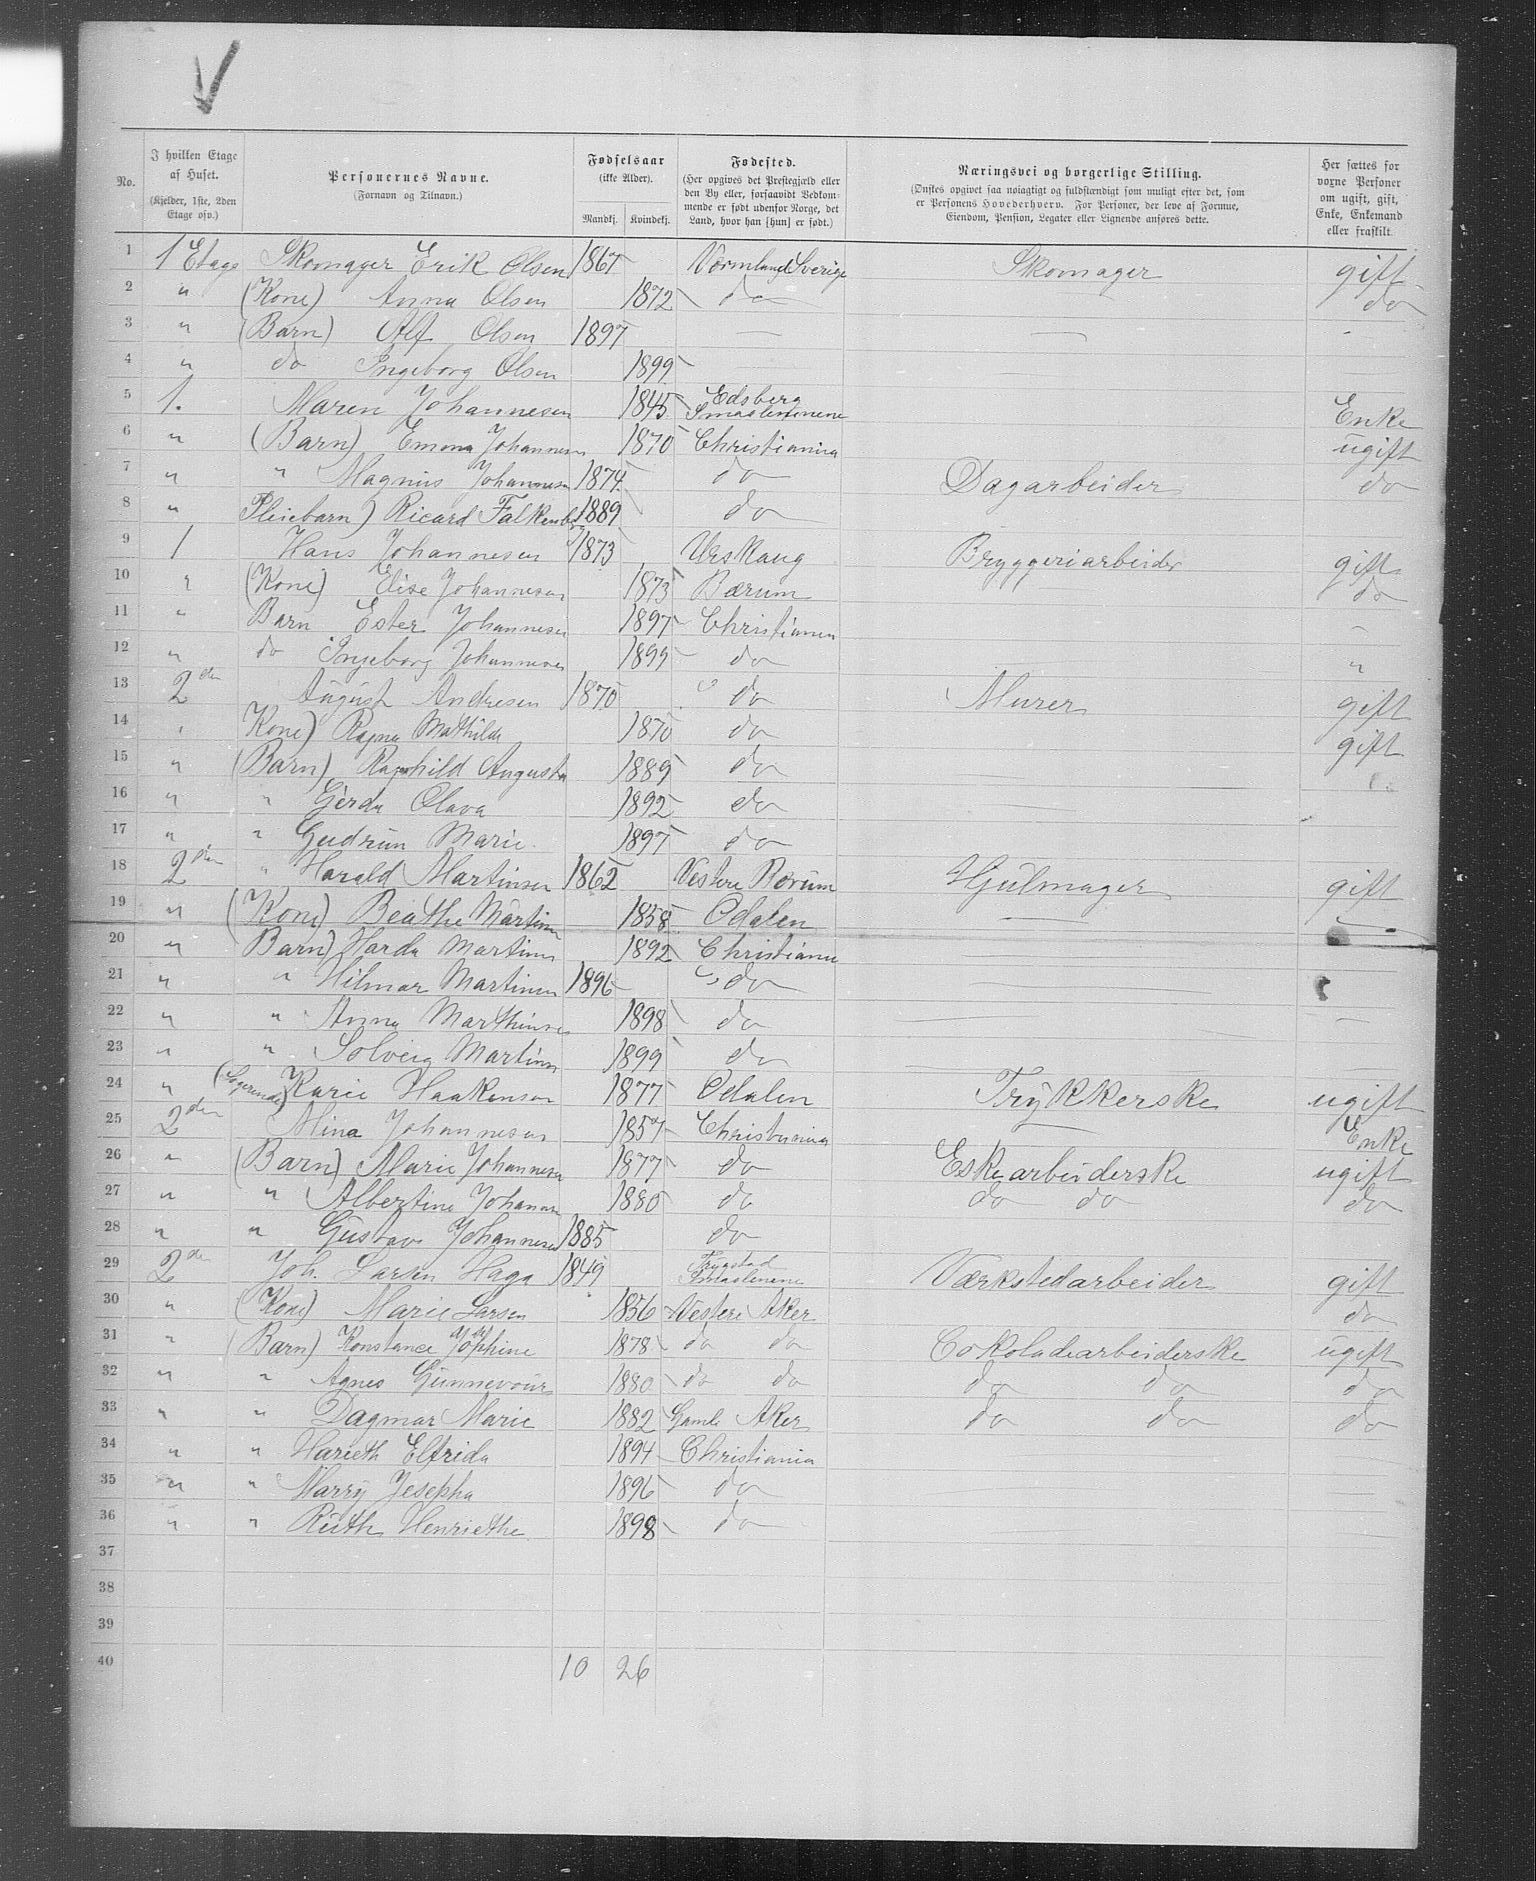 No.
I hvilken Etage af Huset.
(Kjelder, 1ste, 2den Etage osv.)
Personernes Navne.
(Fornavn og Tilnavn.)
Fødselsaar
(ikke Alder).
Mandkj. Kvindekj.
Fødested.
(Her opgives det Prestegjæld eller
den By eller, forsaavidt Vedkom-
mende er født udenfor Norge, det
Land, hvor han [hun] er født.)
Næringsvei og borgerlige Stilling.
(Ønskes opgivet saa nøiagtigt og fuldstændigt som muligt efter det, som
er Personens Hovederhverv. For Personer, der leve af Formue,
Eiendom, Pension, Legater eller Lignende anføres dette.
Her sættes for
voxne Personer
om ugift, gift,
Enke, Enkemand
eller fraskilt.
1 1 Etage Skomager Erik Olsen 1867 Vormland Sverige Skomager gift
2 " (Kone) Anna Olsen 1872 do do
3 " (Barn) Alf Olsen 1897
4 " do Ingeborg Olsen 1899
5 1. Maren Johannesen 1845 Edsberg Smaalennene Enke
6 " (Barn) Emma Johannesen 1870 Christiania ugift
7 " " Magnus Johannesen 1874 do Dagarbeider do
8 " Pleiebarn) Ricard Falkenberg 1889 do
9 1 Hans Johannesen 1873 Urskaug Bryggeriarbeider gift
10 " (Kone) Elise Johannesen 1873 Bærum do
11 " Barn Ester Johannesen 1897 Christiania
12 " do Ingeborg Johannesen 1899 do "
13 2den August Andresen 1870 do Murer gift
14 " Kone) Ragna Mathilde 1870 do gift
15 " (Barn) Ragnhild Augusta 1889 do
16 " " Gerda Olava 1892 do
17 " " Gudrun Marie 1897 do
18 2den " Harald Martinsen 1862 Vestre Borum Hjulmager gift
19 " (Kone) Beathe Martinsen 1858 Odalen
20 " Barn) Harda Martinsen 1892 Christiania
21 " " Hilmar Martinsen 1896 do
22 " " Anna Marthinsen 1898 do
23 " " Solveig Martinsen 1899 do
24 " (Logerende) Karie Haakensen 1877 Odalen Trykkerske ugift
25 2den Mina Johannesen 1857 Christiania Enke
26 " (Barn) Marie Johannesen 1877 do Eskearbeiderske ugift
27 " " Albertine Johannesen 1880 do do do do
28 " " Gustav Johannesen 1885 do
29 2den Joh. Larsen Haga 1849 Trygstad Smaalenene Værkstedarbeider gift
30 " (Kone) Marie Larsen 1856 Vestre Aker do
31 " (Barn) Konstance Josephine 1878 do do Cokoladearbeiderske ugift
32 " " Agnes Gunnevour 1880 do do do do do
33 " " Dagmar Marie 1882 Gamle Aker do do do
34 " " Harieth Elfrida 1894 Christiania
35 " " Harry Josepha 1896 do
36 " " Ruth Henriethe 1898 do
37
38
39
40 10 26